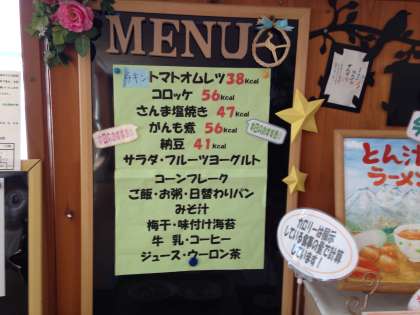 MENU
チキントマトオムレツ38Kcal
コロッケ 56Kcal
さんま塩焼き 47Kcal
がんも煮 56Kcal
納豆 41Kcal
サラダ・フルーツヨーグルト
コーンフレーク
ご飯・お粥・日替わりパン
みそ汁
梅干・味付け海苔
牛 乳・コーヒー
ジュース・ウーロン茶
カロリーは展示
している食事の量で計算
しています！
とん汁
ラーメン